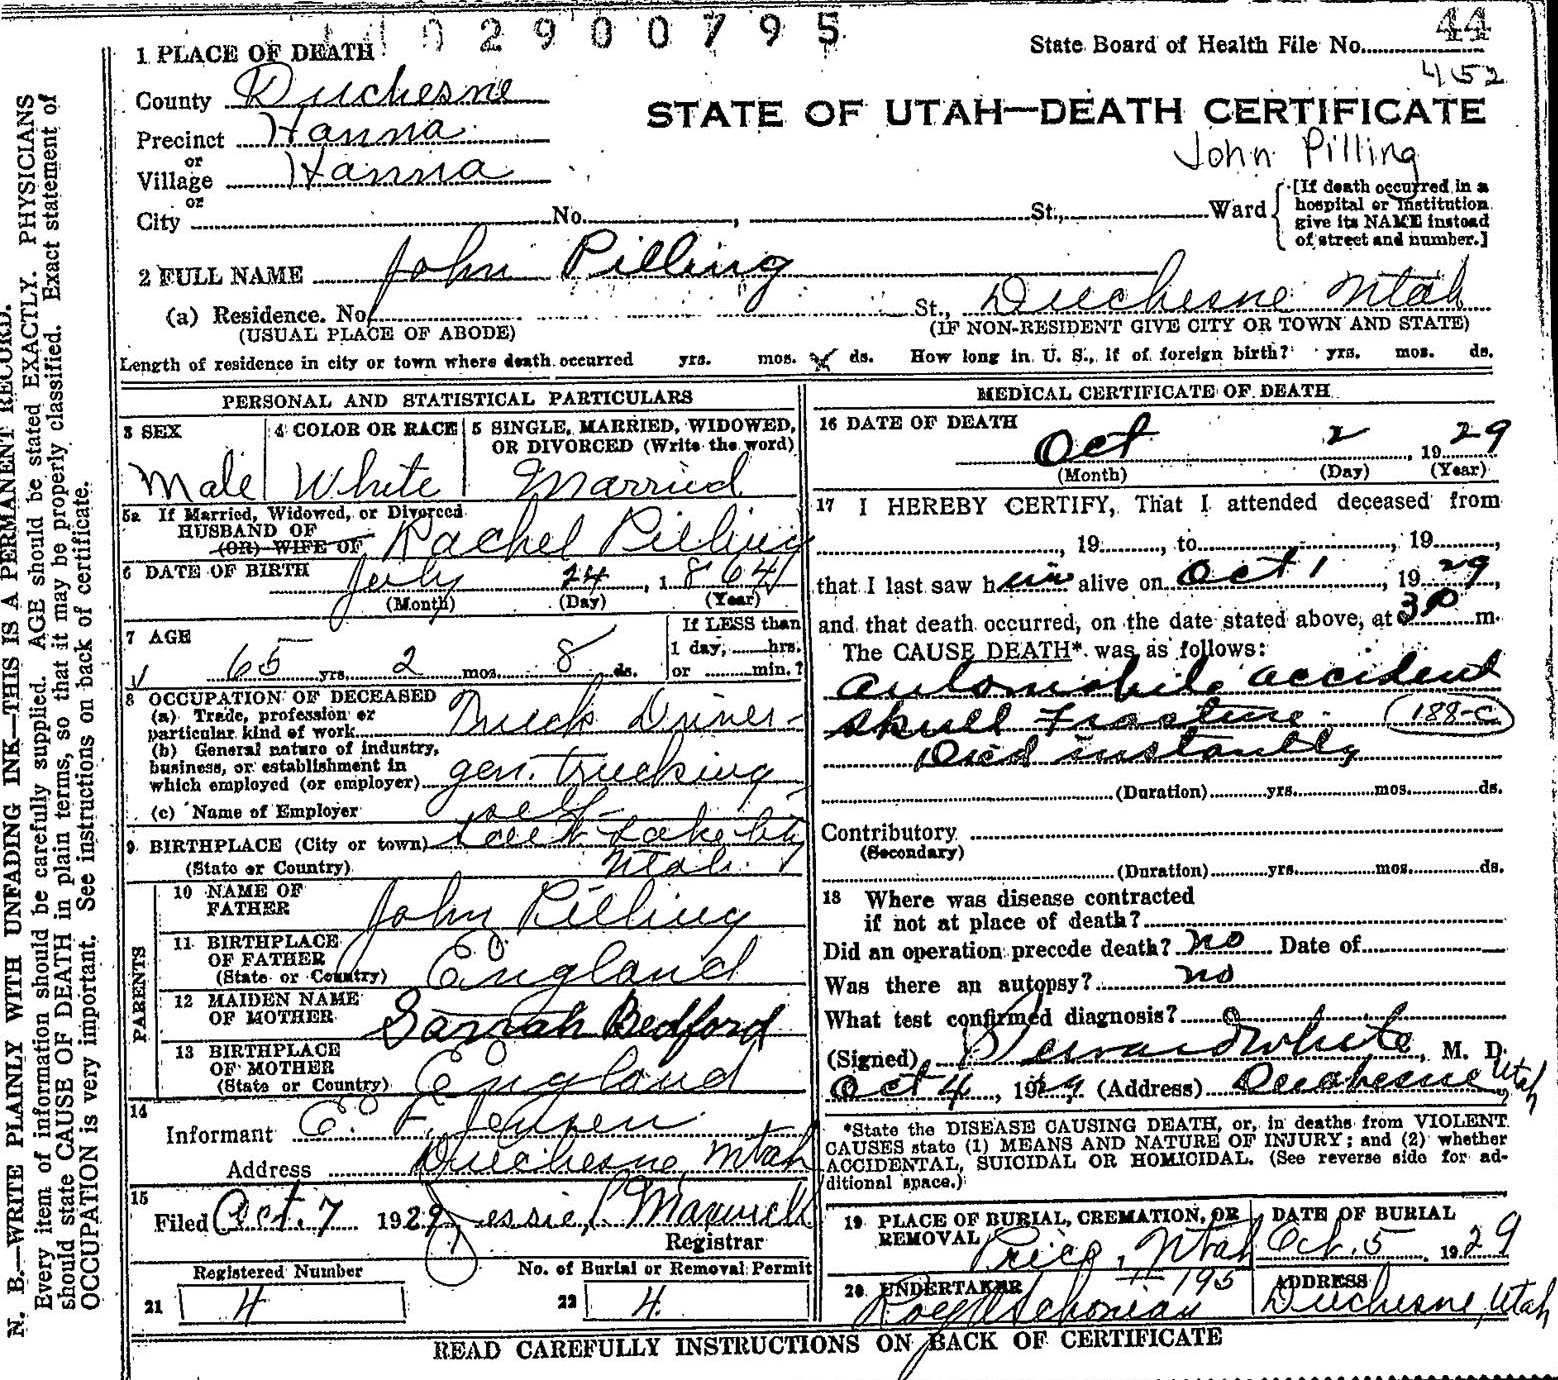 02900795
State Board of Health File No. 44
452
1 PLACE OF DEATH
County Duchesne
STATE OF UTAH—DEATH CERTIFICATE
Precinct Hanna
John Pilling
or
Village Hanna
or
City No. , St., Ward
[If death occurred in a
hospital or institution
give its NAME instead
of street and number.]
2 FULL NAME John Pilling
(a) Residence. No. St., Duchesne Utah
(USUAL PLACE OF ABODE) (IF NON-RESIDENT GIVE CITY OR TOWN AND STATE)
Length of residence in city or town where death occurred yrs. mos. ds. How long in U. S., if of foreign birth? yrs. mos. ds.
PERSONAL AND STATISTICAL PARTICULARS
3 SEX 4 COLOR OR RACE 5 SINGLE, MARRIED, WIDOWED,
OR DIVORCED (Write the word)
Male White Married
5a If Married, Widowed, or Divorced
HUSBAND OF
(OR) WIFE OF Rachel Pilling
6 DATE OF BIRTH July 24, 1864
(Month) (Day) (Year)
7 AGE 65 yrs. 2 mos. 8 ds.
If LESS than
1 day, hrs.
or min.?
8 OCCUPATION OF DECEASED
(a) Trade, profession or
particular kind of work Truck Driver-
(b) General nature of industry,
business, or establishment in
which employed (or employer) gen. trucking
(c) Name of Employer self
9 BIRTHPLACE (City or town) Salt Lake City
(State or Country) Utah.
PARENTS
10 NAME OF
FATHER John Pilling
11 BIRTHPLACE
OF FATHER
(State or Country) England
12 MAIDEN NAME
OF MOTHER Sarrah Bedford
13 BIRTHPLACE
OF MOTHER
(State or Country) England
14
Informant E. F. Jensen
Address Duchesne, Utah
15
Filed Oct. 7 1929, Jessie Maxwell
Registrar
Registered Number No. of Burial or Removal Permit
21 4 22 4.
MEDICAL CERTIFICATE OF DEATH
16 DATE OF DEATH
Oct 2, 1929
(Month) (Day) (Year)
17 I HEREBY CERTIFY, That I attended deceased from
, 19 , to , 19 ,
that I last saw him alive on Oct 1, 1929,
and that death occurred, on the date stated above, at 3 P m.
The CAUSE DEATH* was as follows:
Automobile accident
Skull Fracture. 188-c
Died instantly
(Duration) yrs. mos. ds.
Contributory
(Secondary)
(Duration) yrs. mos. ds.
18 Where was disease contracted
if not at place of death?
Did an operation precede death? no Date of
Was there an autopsy? no
What test confirmed diagnosis?
(Signed) White, M. D.
Oct 4, 1929 (Address) Duchesne Utah
*State the DISEASE CAUSING DEATH, or, in deaths from VIOLENT
CAUSES state (1) MEANS AND NATURE OF INJURY; and (2) whether
ACCIDENTAL, SUICIDAL OR HOMICIDAL. (See reverse side for ad-
ditional space.)
19 PLACE OF BURIAL, CREMATION, OR
REMOVAL Price, Utah
DATE OF BURIAL
Oct. 5 1929
20 UNDERTAKER #195
ADDRESS
Duchesne, Utah
READ CAREFULLY INSTRUCTIONS ON BACK OF CERTIFICATE
N. B.—WRITE PLAINLY WITH UNFADING INK—THIS IS A PERMANENT RECORD.
Every item of information should be carefully supplied. AGE should be stated EXACTLY. PHYSICIANS
should state CAUSE OF DEATH in plain terms, so that it may be properly classified. Exact statement of
OCCUPATION is very important. See instructions on back of certificate.